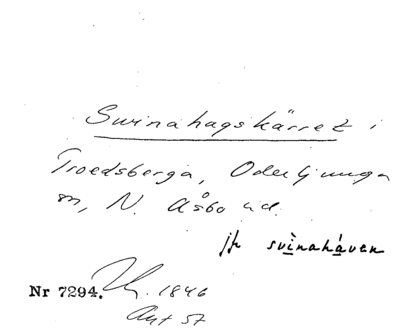 Svinahagskärret i
Troedsberga, Oderljunga
sn, N. Åsbo hd.
jfr svìnaháven
Nr 7294. 1846